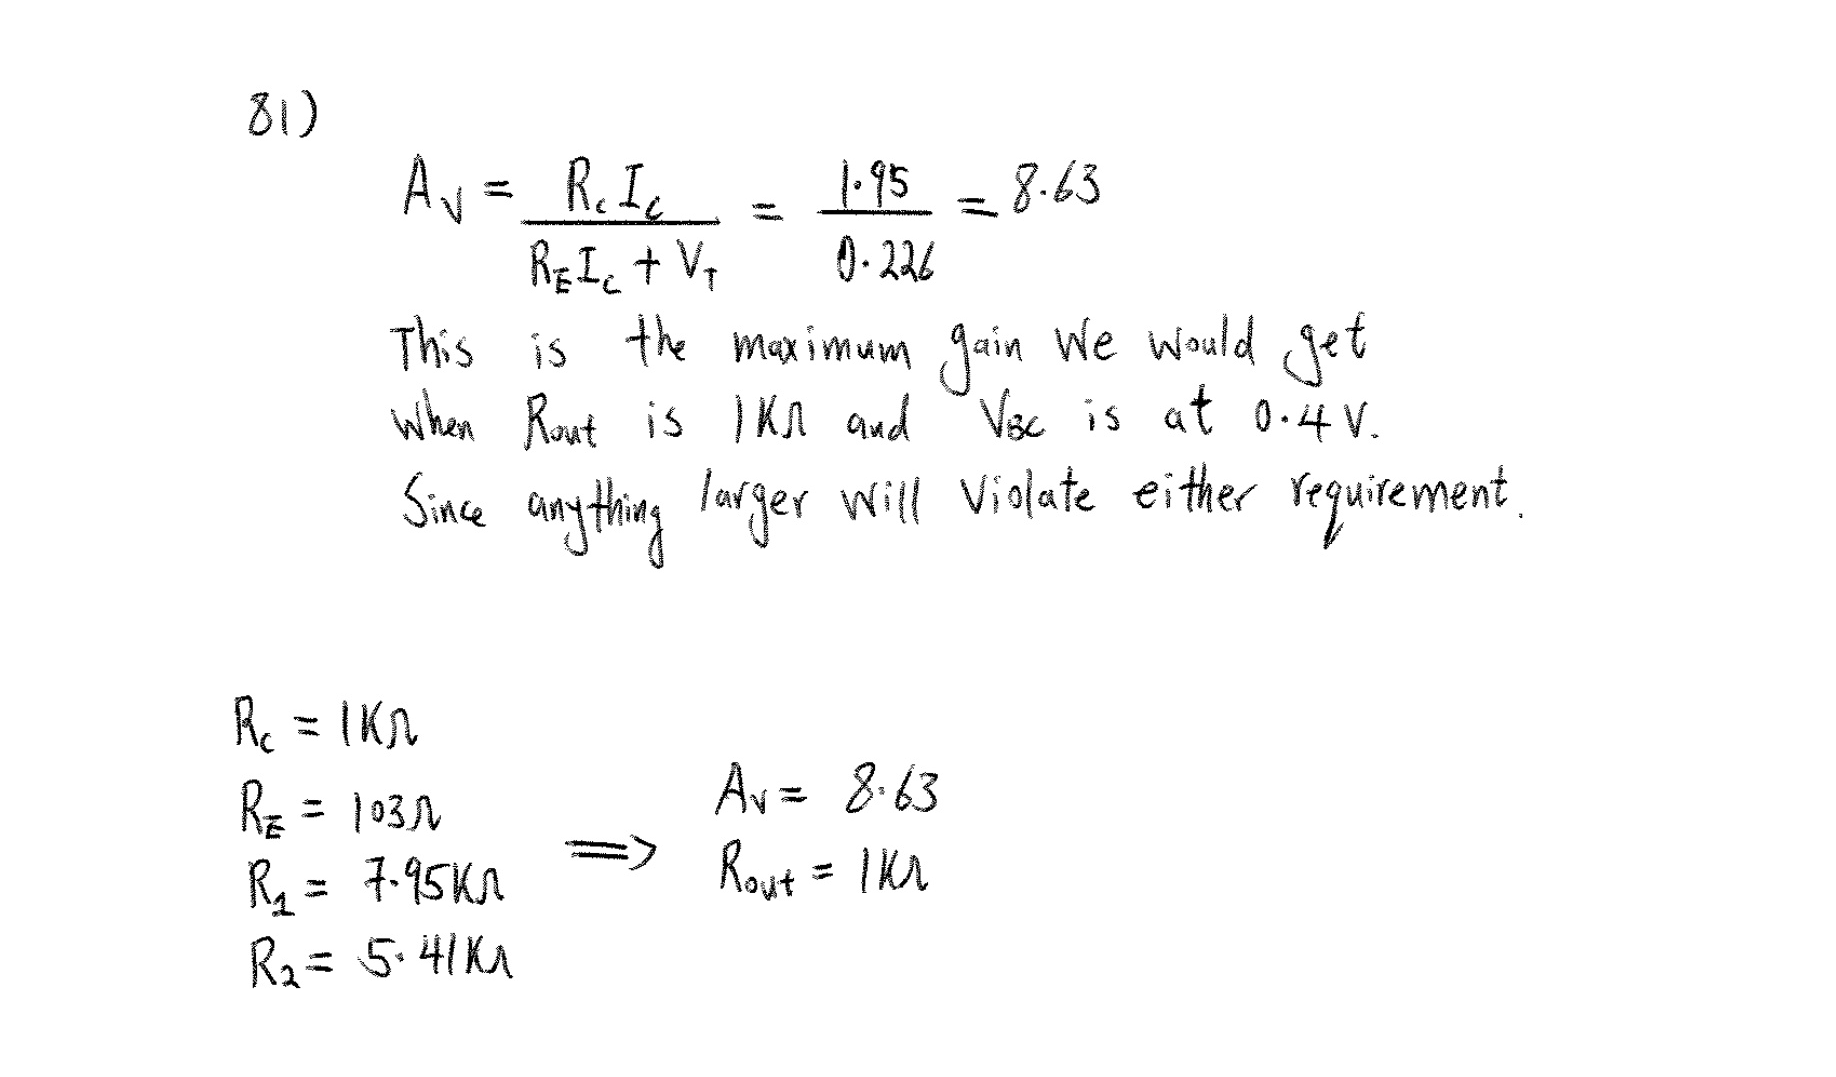 81)
A_V = R_c I_c / (R_E I_c + V_T) = 1.95 / 0.226 = 8.63
This is the maximum gain we would get
when Rout is 1KΩ and V_BC is at 0.4 V.
Since anything larger will violate either requirement.
R_c = 1KΩ
R_E = 103Ω
R_1 = 7.95KΩ
R_2 = 5.41KΩ
⟹
A_V = 8.63
R_out = 1KΩ